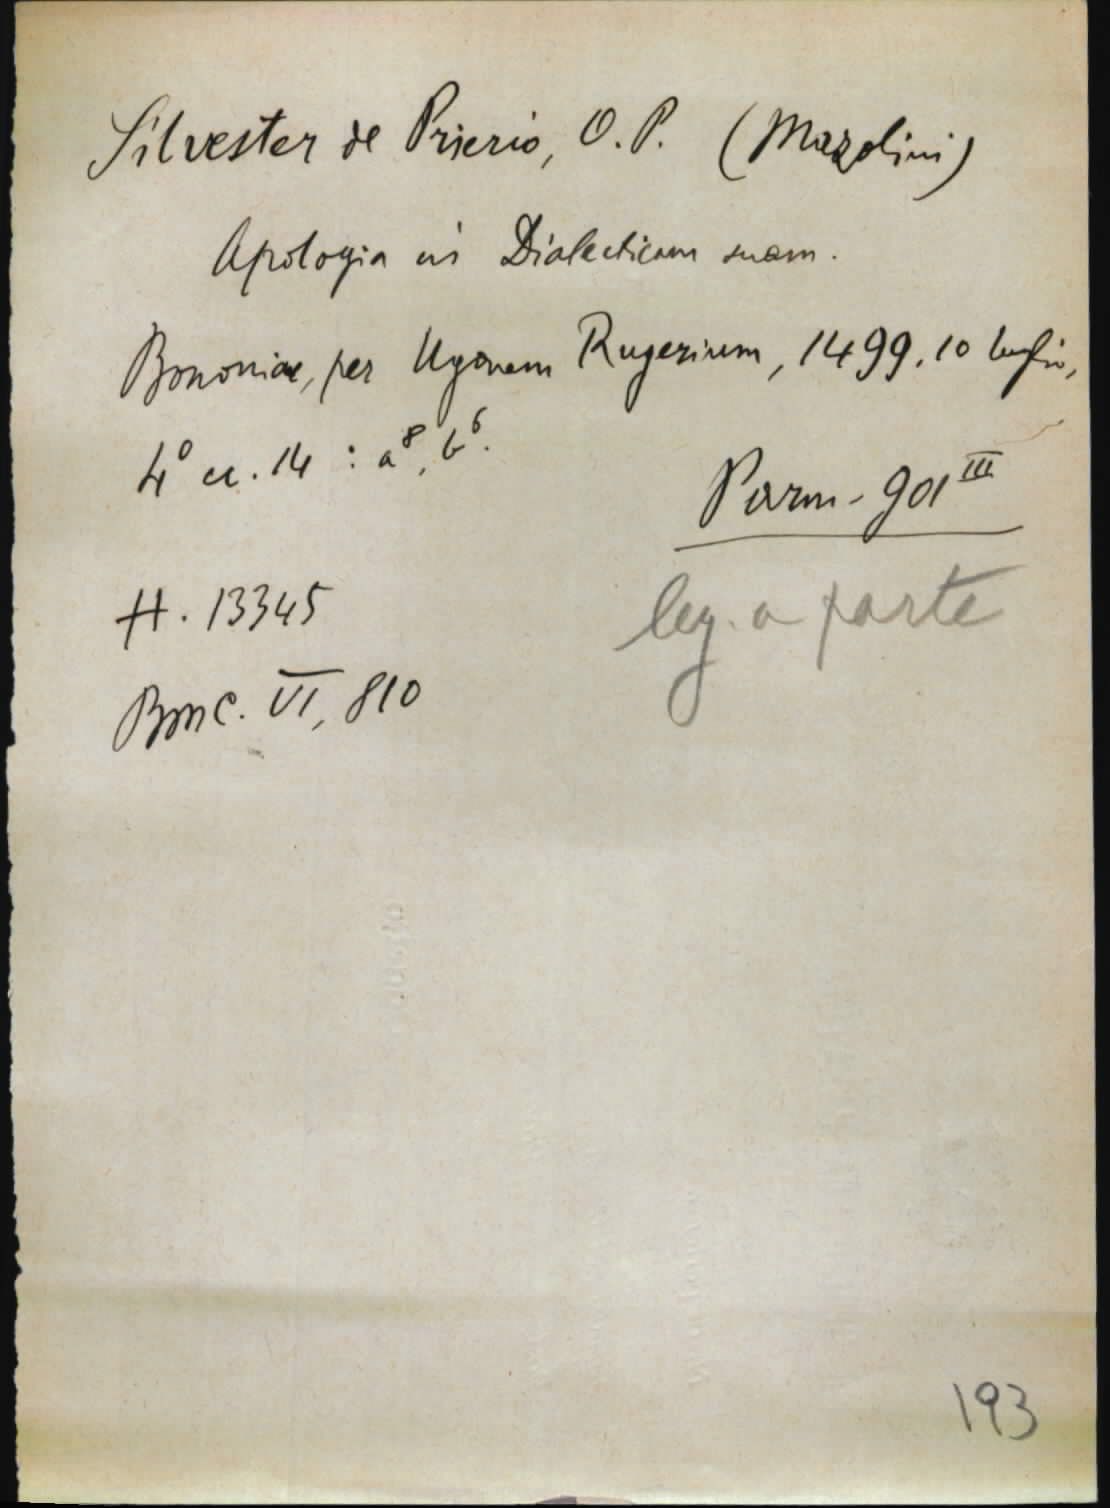 Silvester de Prierio, O.P. (Mazolini)
Apologia in Dialecticam suam.
Bononiae, per Ugonem Rugerium, 1499, 10 luglio,
4° cc. 14 : a⁸, b⁶.
Parm. 901 III
leg. a parte
H. 13345
BMC. VI, 810
193